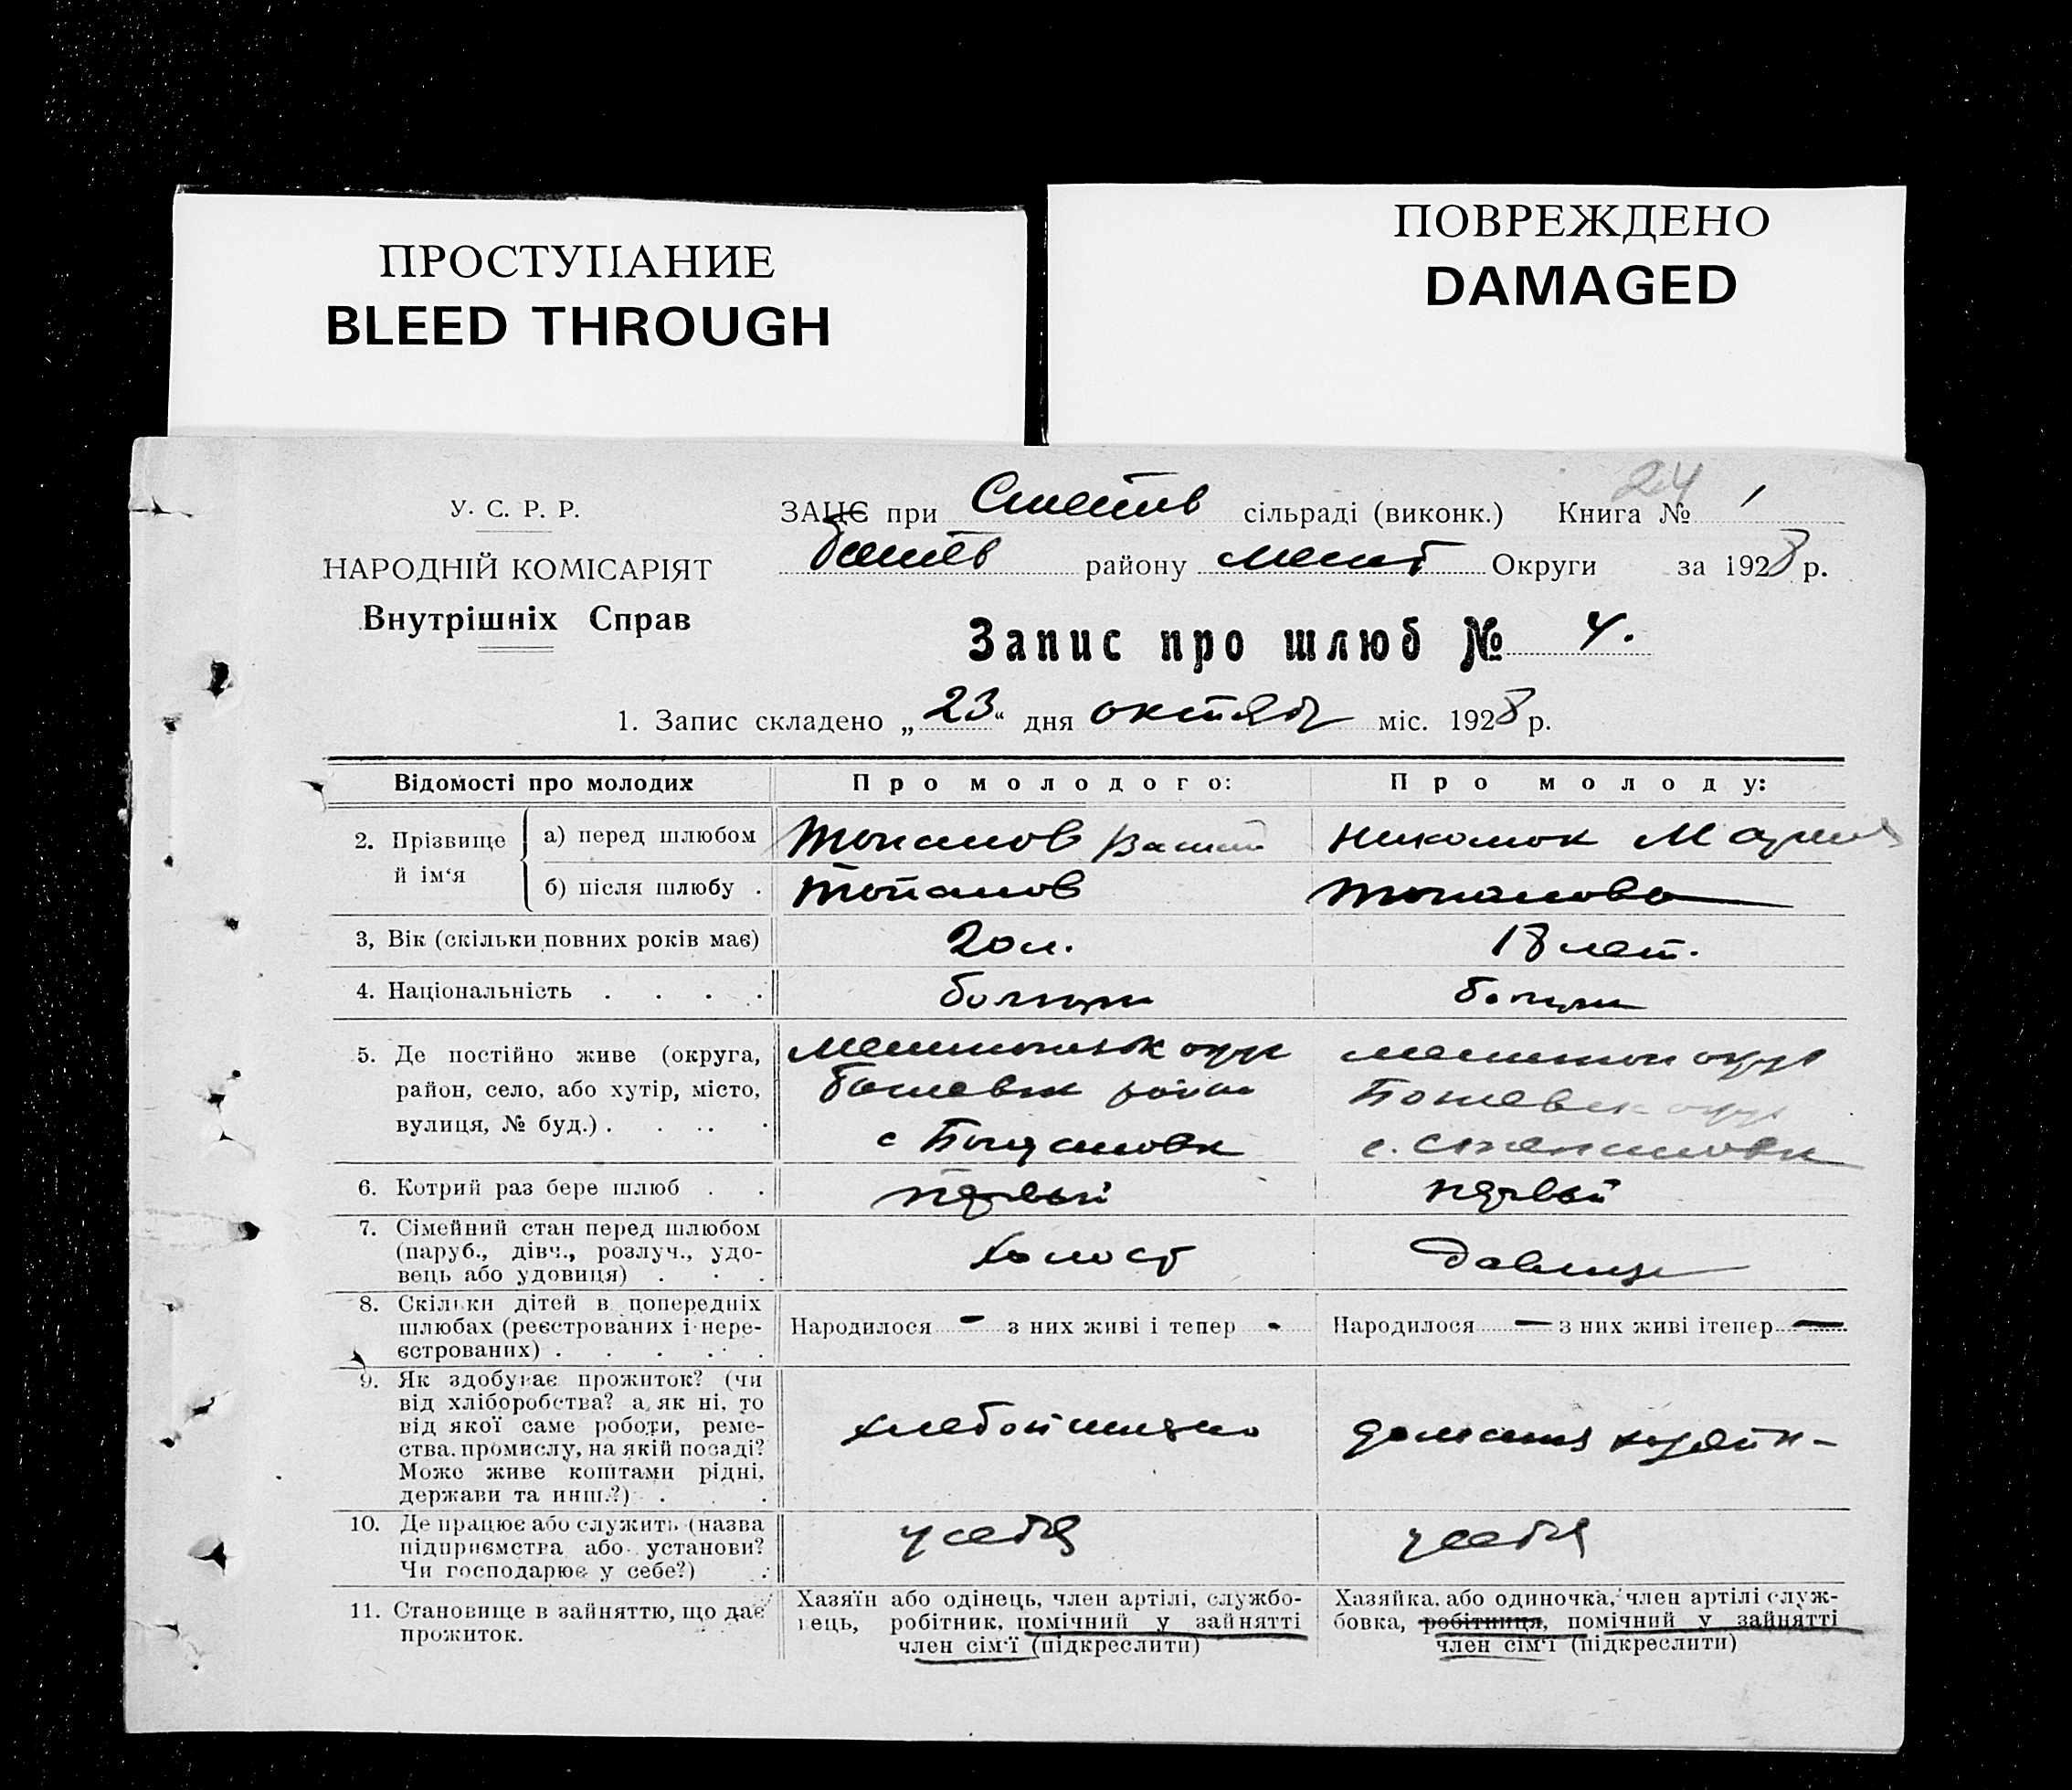 ПРОСТУПАНИЕ
BLEED THROUGH
ПОВРЕЖДЕНО
DAMAGED
24
У. С. Р. Р.
НАРОДНІЙ КОМІСАРІЯТ
Внутрішніх Справ
ЗАЦЄ при сільраді (виконк.) Книга № 1
району Округи за 1928 р.
Запис про шлюб № 4.
1. Запис складено „23“ дня октябр міс. 1928 р.
Відомості про молодих
Про молодого:
Про молоду:
2. Прізвище й ім‘я
а) перед шлюбом
Топалов
б) після шлюбу .
Топалов
Топалова
3, Вік (скільки повних років має)
20 л.
18 лет.
4. Національність . . . .
болгари
болгари
5. Де постійно живе (округа,
район, село, або хутір, місто,
вулиця, № буд.) . . . . .
с Богдановк
с. Степановки
6. Котрий раз бере шлюб . .
первый
первый
7. Сімейний стан перед шлюбом
(паруб., дівч., розлуч., удо-
вець або удовиця) . . .
холост
девица
8. Скільки дітей в попередніх
шлюбах (реєстрованих і нере-
єстрованих) . . . . .
Народилося – з них живі і тепер -
Народилося — з них живі ітепер —
9. Як здобуває прожиток? (чи
від хліборобства? а як ні, то
від якої саме роботи, реме-
ства. промислу, на якій посаді?
Може живе коштами рідні,
держави та инш.?) . .
10. Де працює або служить (назва
підприємства або установи?
Чи господарює у себе?)
у себя
у себя
11. Становище в зайняттю, що дає
прожиток.
Хазяїн або одінець, член артілі, службо-
вець, робітник, помічний у зайнятті
член сім‘ї (підкреслити)
Хазяйка, або одиночка, член артілі служ-
бовка, робітниця, помічний у зайнятті
член сім‘ї (підкреслити)